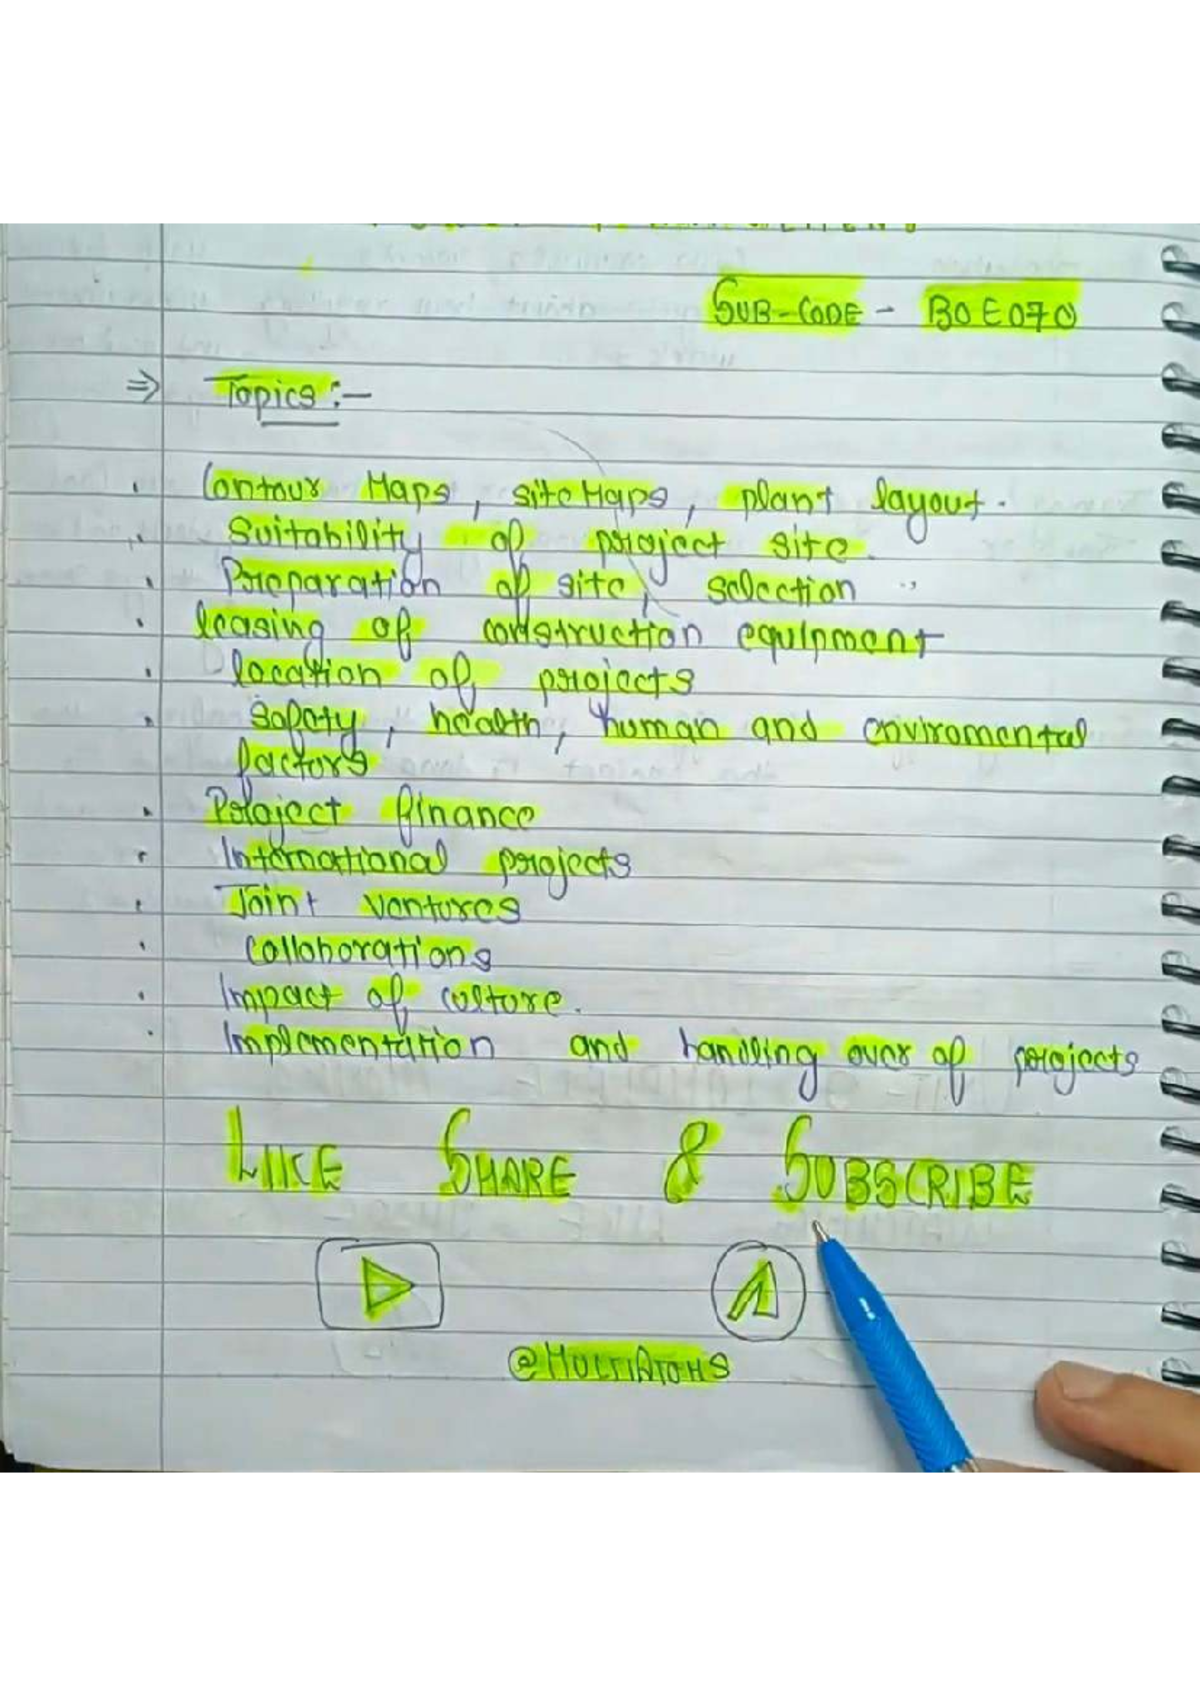 SUB-CODE - BOE070
⇒ Topics :-
. Contour Maps, site Maps, plant layout.
. Suitability of project site.
. Preparation of site, selection
. leasing of construction equipment
. location of projects
. Safety, health, human and enviromental
factors
. Project finance
. International projects
. Joint ventures
. Collaborations
. Impact of culture.
. Implementation and handling over of projects
LIKE SHARE & SUBSCRIBE
@MULTIATOMS